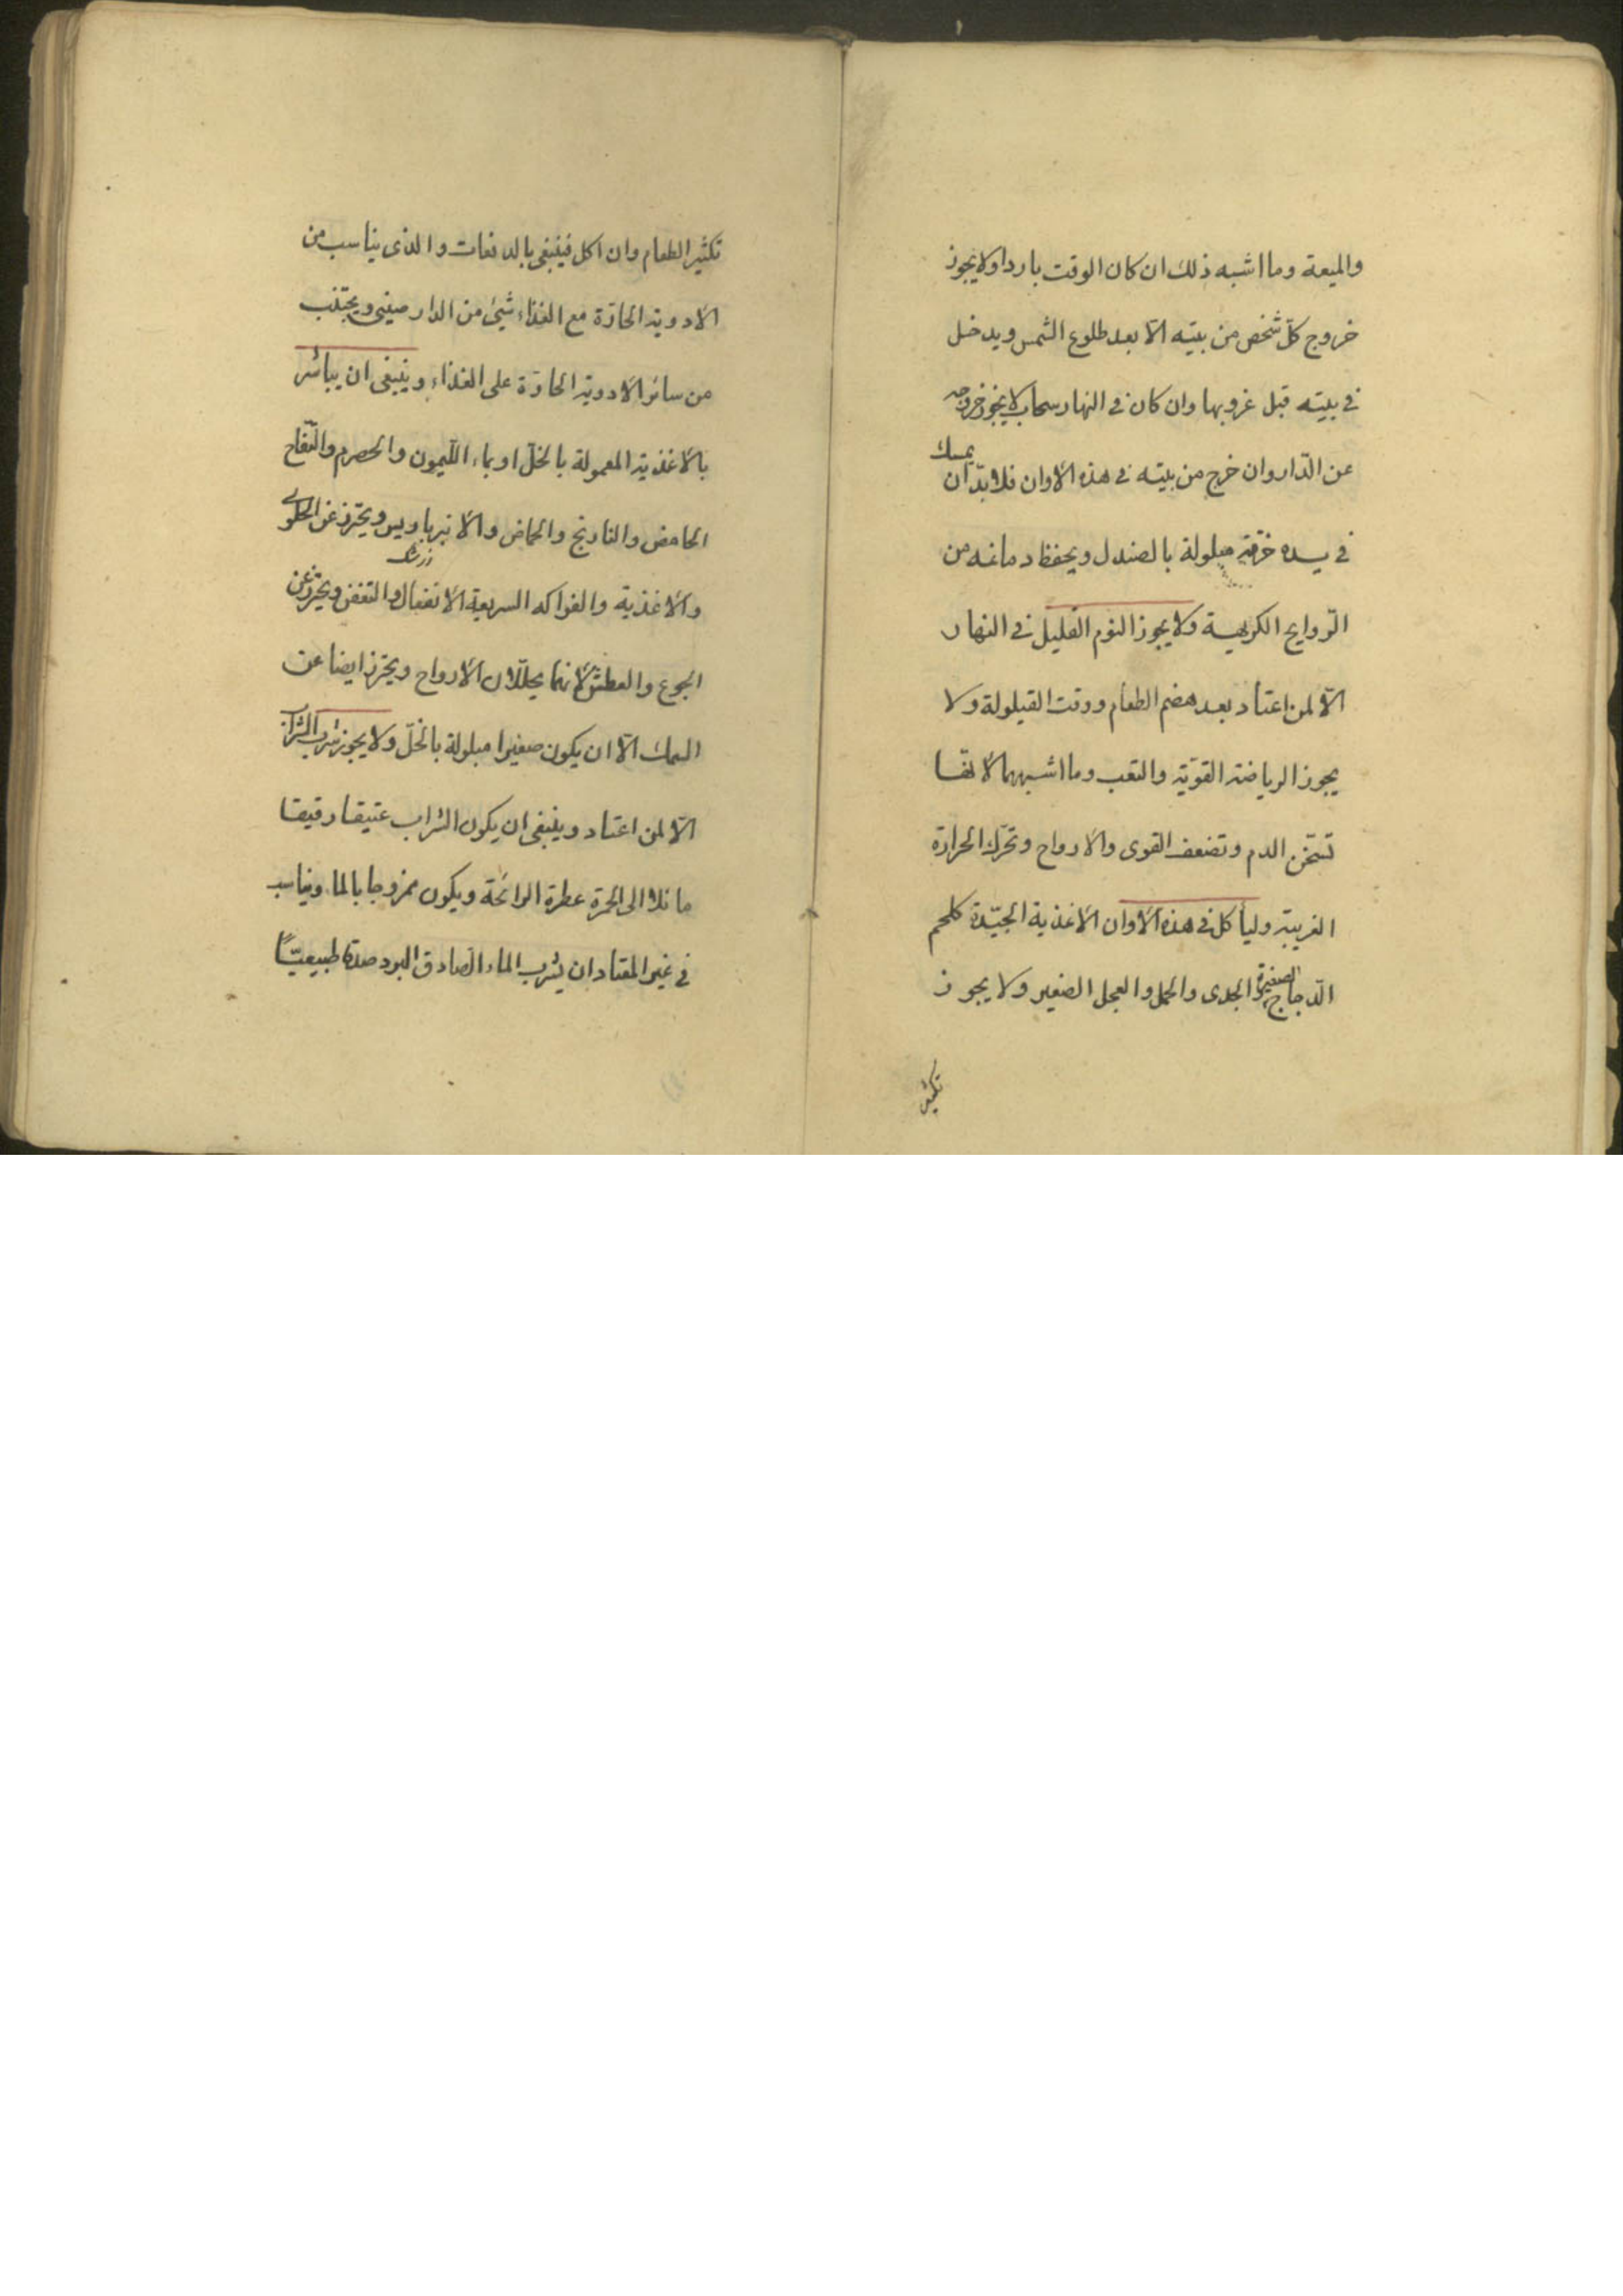 والميعة وما اشبه ذلك ان كان الوقت باردا ولا يجوز
خروج كلّ شخص من بيته الّا بعد طلوع الشمس ويدخل
في بيته قبل غروبها وان كان في النهار سحاب لا يجوز خروجه
عن الدّار وان خرج من بيته في هذه الاوان فلا بدّ ان يمسك
في يده خرقة مبلولة بالصندل ويحفظ دماغه من
الرّوايح الكريهية ولا يجوز النوم القليل في النهار
الّا لمن اعتاد بعد هضم الطعام ووقت القيلولة ولا
يجوز الرياضة القويّة والتعب وما اشبههما لانّها
تسخّن الدم وتضعف القوى والارواح وتحرّك الحرارة
الغريبة ولياكل في هذه الاوان الاغذية الجيّدة كلحم
الدّجاج الصغيرة والجدى والحمل والعجل الصغير ولا يجوز
تكثير
تكثير الطعام وان اكل فينبغى بالدفعات والذى يناسب من
الادوية الحارّة مع الغذاء شيئ من الدارصينى ويجتنب
من سائر الادوية الحارّة على الغذاء وينبغى ان يباشر
بالاغذية المعمولة بالخلّ او بماء اللّيمون والحصرم والتّفاح
الحامض والنارنج والحماض والانبرباريس ويحترز عن الحلوى
زرشك
والاغذية والفواكه السريعة الانفعال والتعفن ويحترز عن
الجوع والعطش لانهما يحلّلان الارواح ويحترز ايضا عن
السمك الّا ان يكون صغيرا مبلولة بالخلّ ولا يجوز شرب الشراب
الّا لمن اعتاد وينبغى ان يكون الشراب عتيقا رقيقا
مائلا الى الحمرة عطرة الرائحة ويكون ممزوجا بالماء ويناسب
في غير المعتاد ان يشرب الماء الصادق البرد صدقا طبيعيّاً